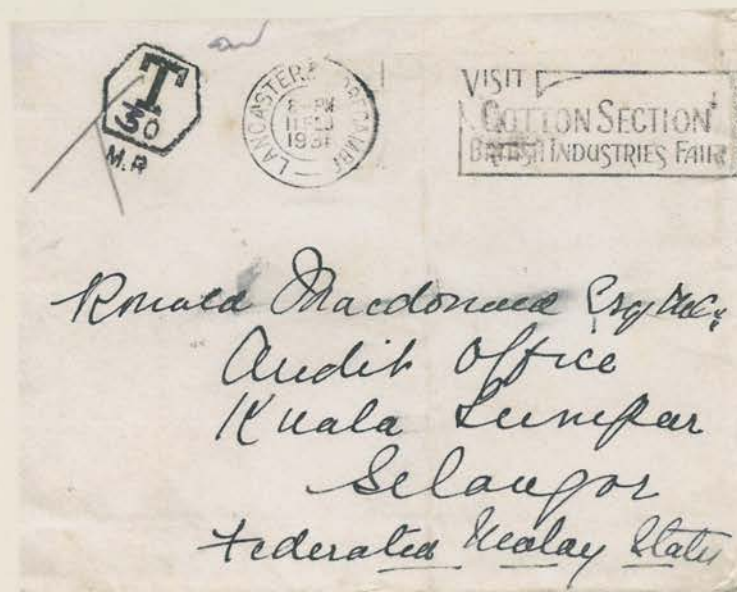 T
30
M.R
LANCASTER & MORECAMBE
8 - PM
11 FEB
1931
VISIT
COTTON SECTION
BRITISH INDUSTRIES FAIR
Ronald Macdonald Esq
Audit Office
Kuala Lumpar
Selangor
Federated Malay States